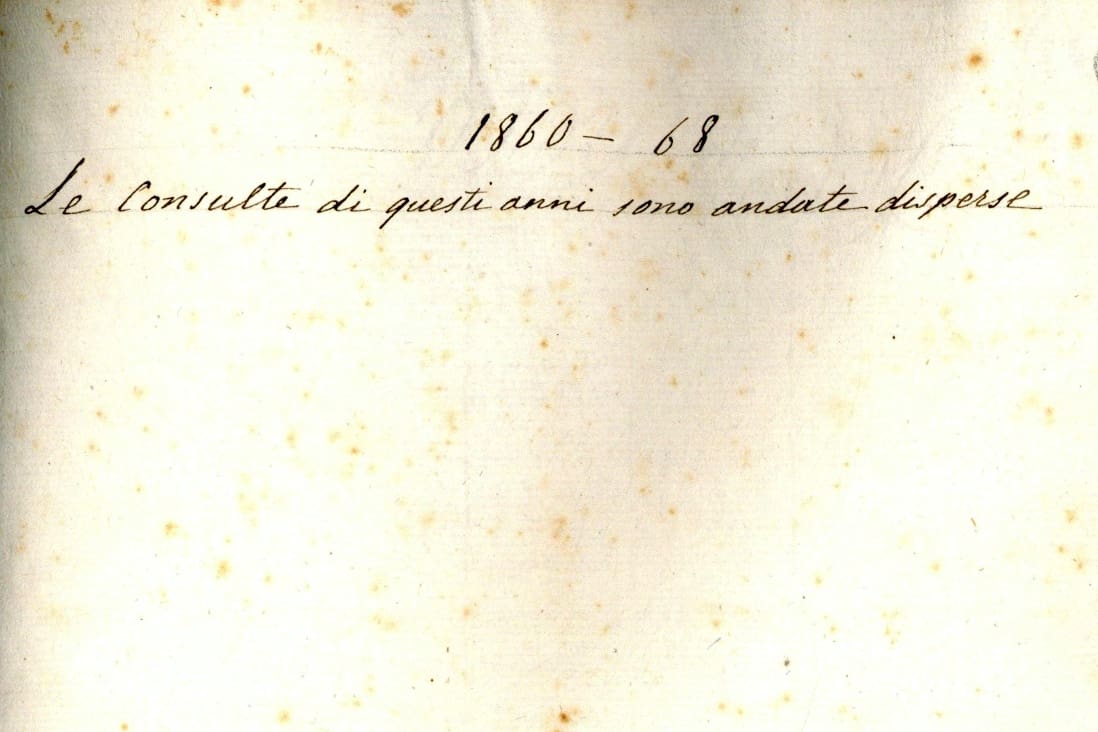 1860 – 68
Le Consulte di questi anni sono andate disperse